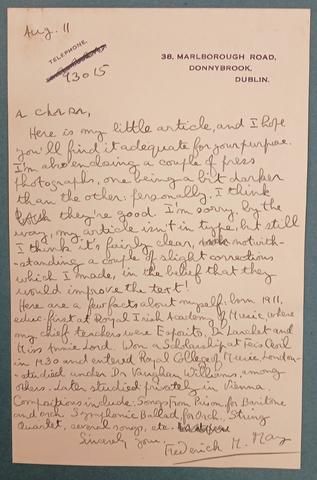 Aug. 11
TELEPHONE.
93015
38, MARLBOROUGH ROAD,
DONNYBROOK,
DUBLIN.
A chara,
Here is my little article, and I hope
you'll find it adequate for your purpose.
I'm also enclosing a couple of press
photographs, one being a bit darker
than the other: personally, I think
they're good. I'm sorry, by the
way, my article isn't in type, but still
I think it's fairly clear, notwith-
-standing a couple of slight corrections
which I made, in the belief that they
would improve the text!
Here are a few facts about myself, born 1911,
educ. first at Royal Irish Academy of Music, where
my chief teachers were Esposito, Dr Larchet and
Miss Annie Lord. Won a Scholarship at Feis Ceoil
in 1930 and entered Royal College of Music, London-
-studied under Dr Vaughan Williams, among
others. Later studied privately in Vienna.
Compositions include: Songs From Prison for Baritone
and orch. Symphonic Ballad for Orch. String
Quartet, several songs, etc.
Sincerely yours,
Frederick M. May